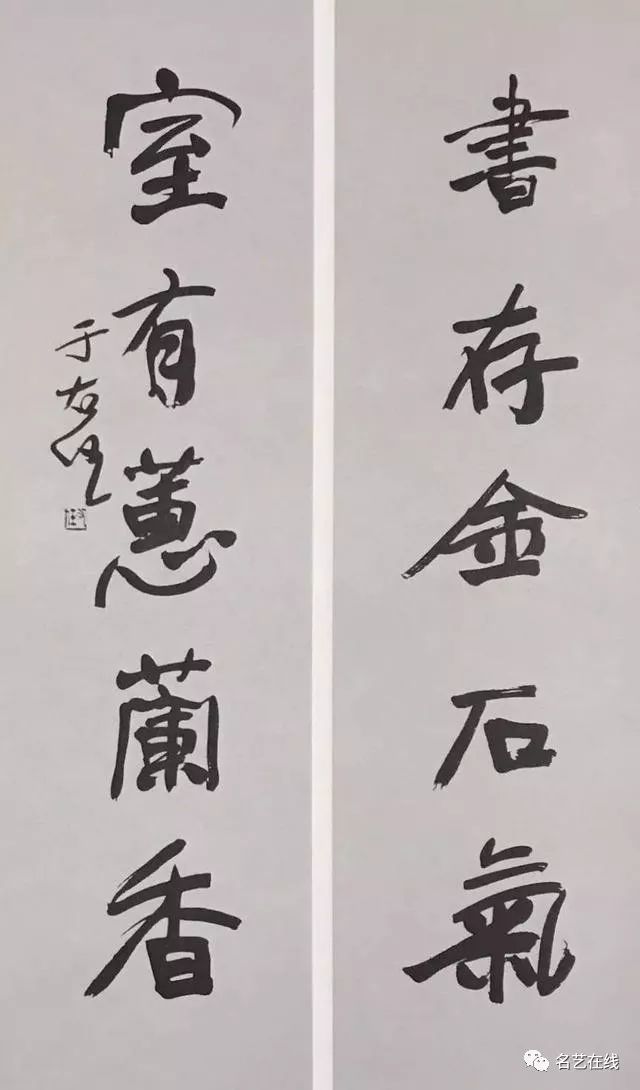 書存金石氣
室有蕙蘭香
于右任
名艺在线